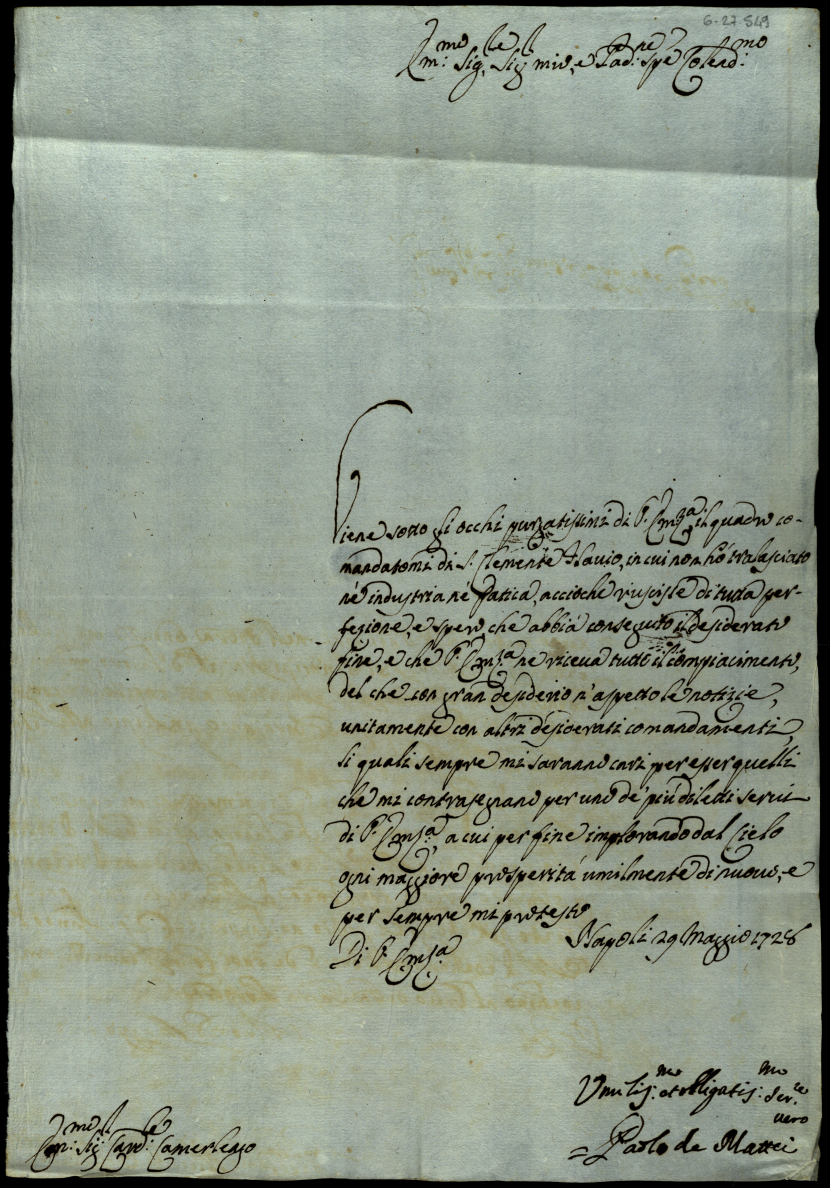 6-27 549
Em:mo Sig:re Sig:re mio, e Pad:ne Colend:mo
Viene sotto gli occhi purgatissimi di V. Em:za il quadro co-
mandatomi di S. Clemente Flavio, in cui non hò tralasciato
nè industria nè fatica, acciochè riuscisse di tutta per-
fezione, e spero, che abbia conseguito il desiderato
fine, e che V. Em:za ne riceva tutto il compiacimento,
del che con gran desiderio n'aspetto le notizie,
unitamente con altri desiderati comandamenti,
li quali sempre mi saranno cari per esser quelli
che mi contrasegnano per uno de' più diletti servi
di V. Em:za, a cui per fine implorando dal Cielo
ogni maggiore prosperità umilmente di nuovo, e
per sempre mi protesto
Di V. Em:za Napoli 29 Maggio 1728
Umilis:mo et obligatis:mo Ser:re
vero
Paolo de Mattei
Em:mo Sig:re Card:le Camerlengo